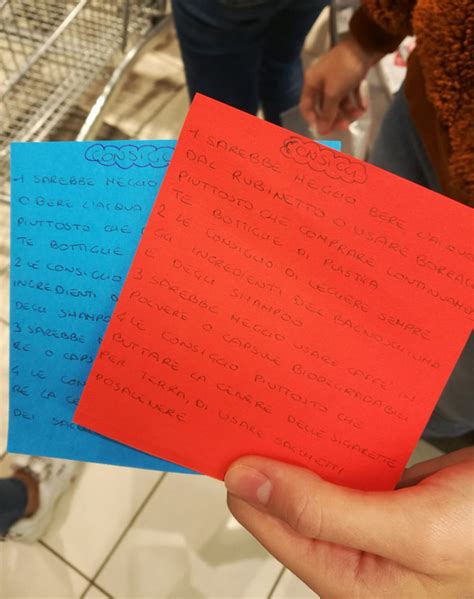 CONSIGLI
-1 SAREBBE MEGLIO
O BERE L'ACQUA
PIUTTOSTO CHE
TE BOTTIGLIE
2 LE CONSIGLIO
INGREDIENTI
DEGLI SHAMPOO
3 SAREBBE
RE O CAPS
4 LE CON
RE LA CE
DEI SAC
CONSIGLI
-1 SAREBBE MEGLIO BERE L'ACQUA
DAL RUBINETTO O USARE BORRAC
PIUTTOSTO CHE COMPRARE CONTINUAMEN
TE BOTTIGLIE DI PLASTICA
2 LE CONSIGLIO DI LEGGERE SEMPRE
GLI INGREDIENTI DEL BAGNOSCHIUMA
E DEGLI SHAMPOO
3 SAREBBE MEGLIO USARE CAFFE' IN
POLVERE O CAPSULE BIODEGRADABILI
4 LE CONSIGLIO PIUTTOSTO CHE
BUTTARE LA CENERE DELLE SIGARETTE
PER TERRA, DI USARE SACCHETTI
POSACENERE